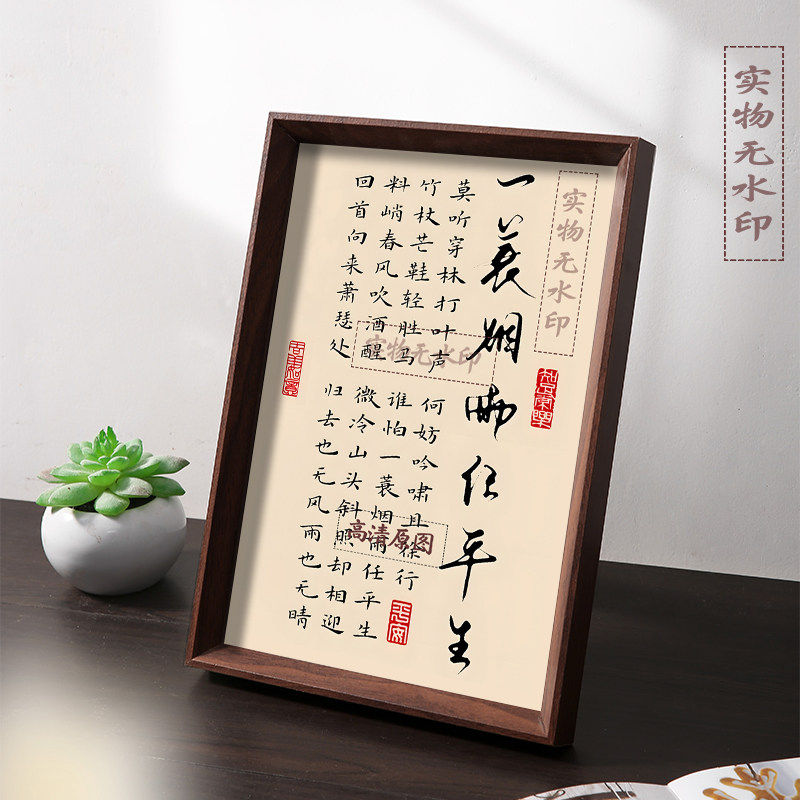 实物无水印
实物无水印
一蓑烟雨任平生
知足常乐
莫听穿林打叶声
竹杖芒鞋轻胜马
料峭春风吹酒醒
回首向来萧瑟处
实物无水印
何妨吟啸且徐行
谁怕一蓑烟雨任平生
微冷山头斜照却相迎
归去也无风雨也无晴
高清原图
平安